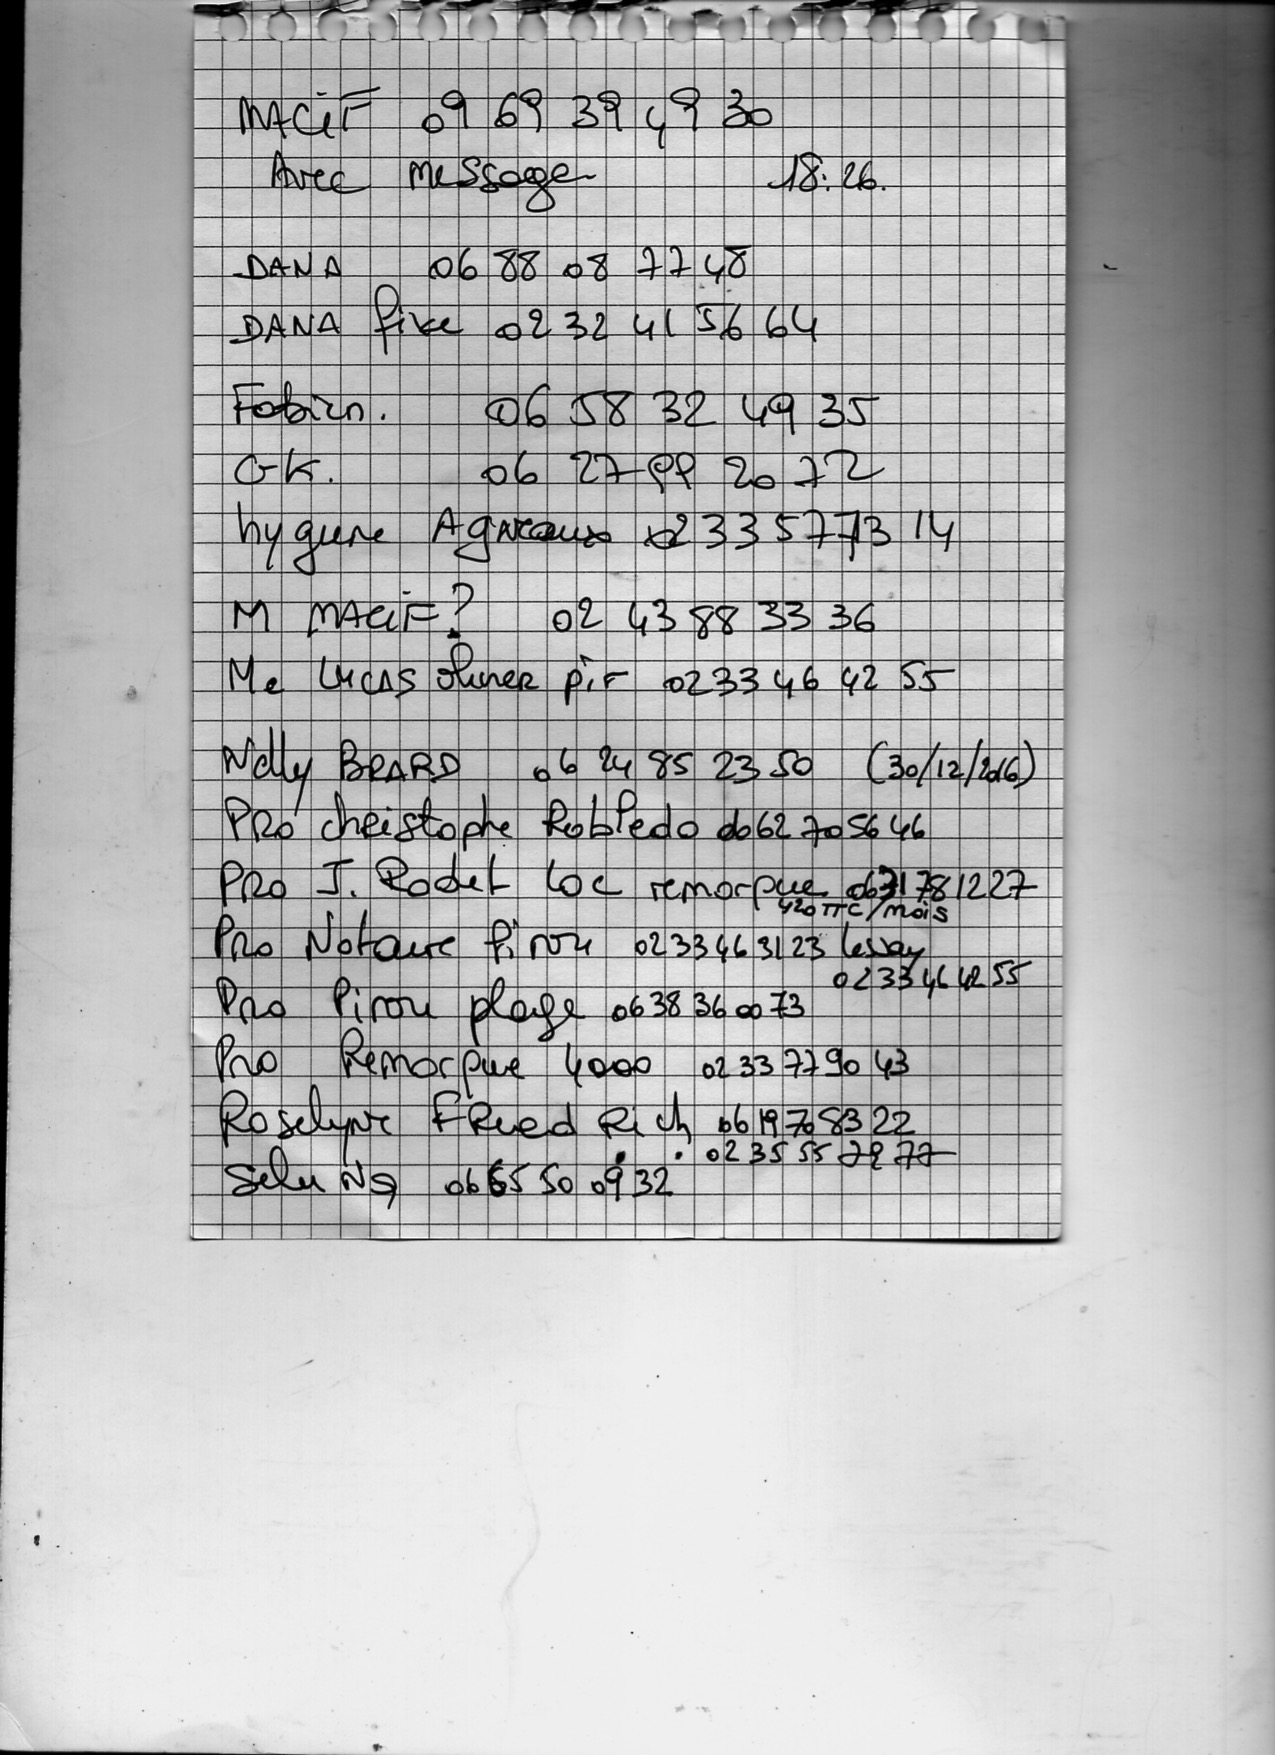 MACiF 09 69 39 49 30
Avec message 18:26.
DANA 06 88 08 77 48
DANA fixe 02 32 41 56 64
Fabien. 06 58 32 49 35
GK. 06 27 99 20 72
hygiene Agneaux 02 33 57 73 14
M MACiF? 02 43 88 33 36
Me LUCAS olivier pir 02 33 46 42 55
Nelly BRARD 06 24 85 23 50 (30/12/2016)
PRO christophe Robledo 06 62 70 56 46
PRO J. Rodet loc remorque 0631781227
420 TTC/mois
PRO Notaire pirou 02 33 46 31 23 lessay
02 33 46 42 55
Pro Pirou plage 06 38 36 00 73
Pro Remorque 4000 02 33 77 90 43
Roselyne FRiedRich 06 19 76 83 22
02 35 55 79 77
06 65 50 09 32